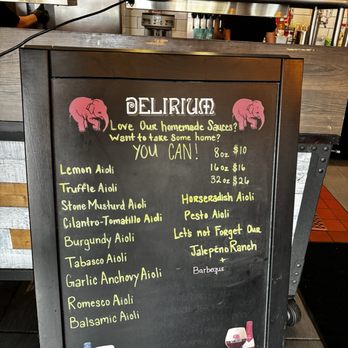 DELIRIUM
Love Our homemade Sauces?
Want to take Some home?
YOU CAN!
8oz $10
16oz $16
32oz $26
Lemon Aioli
Truffle Aioli
Stone Musturd Aioli
Cilantro-Tomatillo Aioli
Burgundy Aioli
Tabasco Aioli
Garlic Anchovy Aioli
Romesco Aioli
Balsamic Aioli
Horseradish Aioli
Pesto Aioli
Let's not Forget Our
Jalepeño Ranch
+
Barbeque